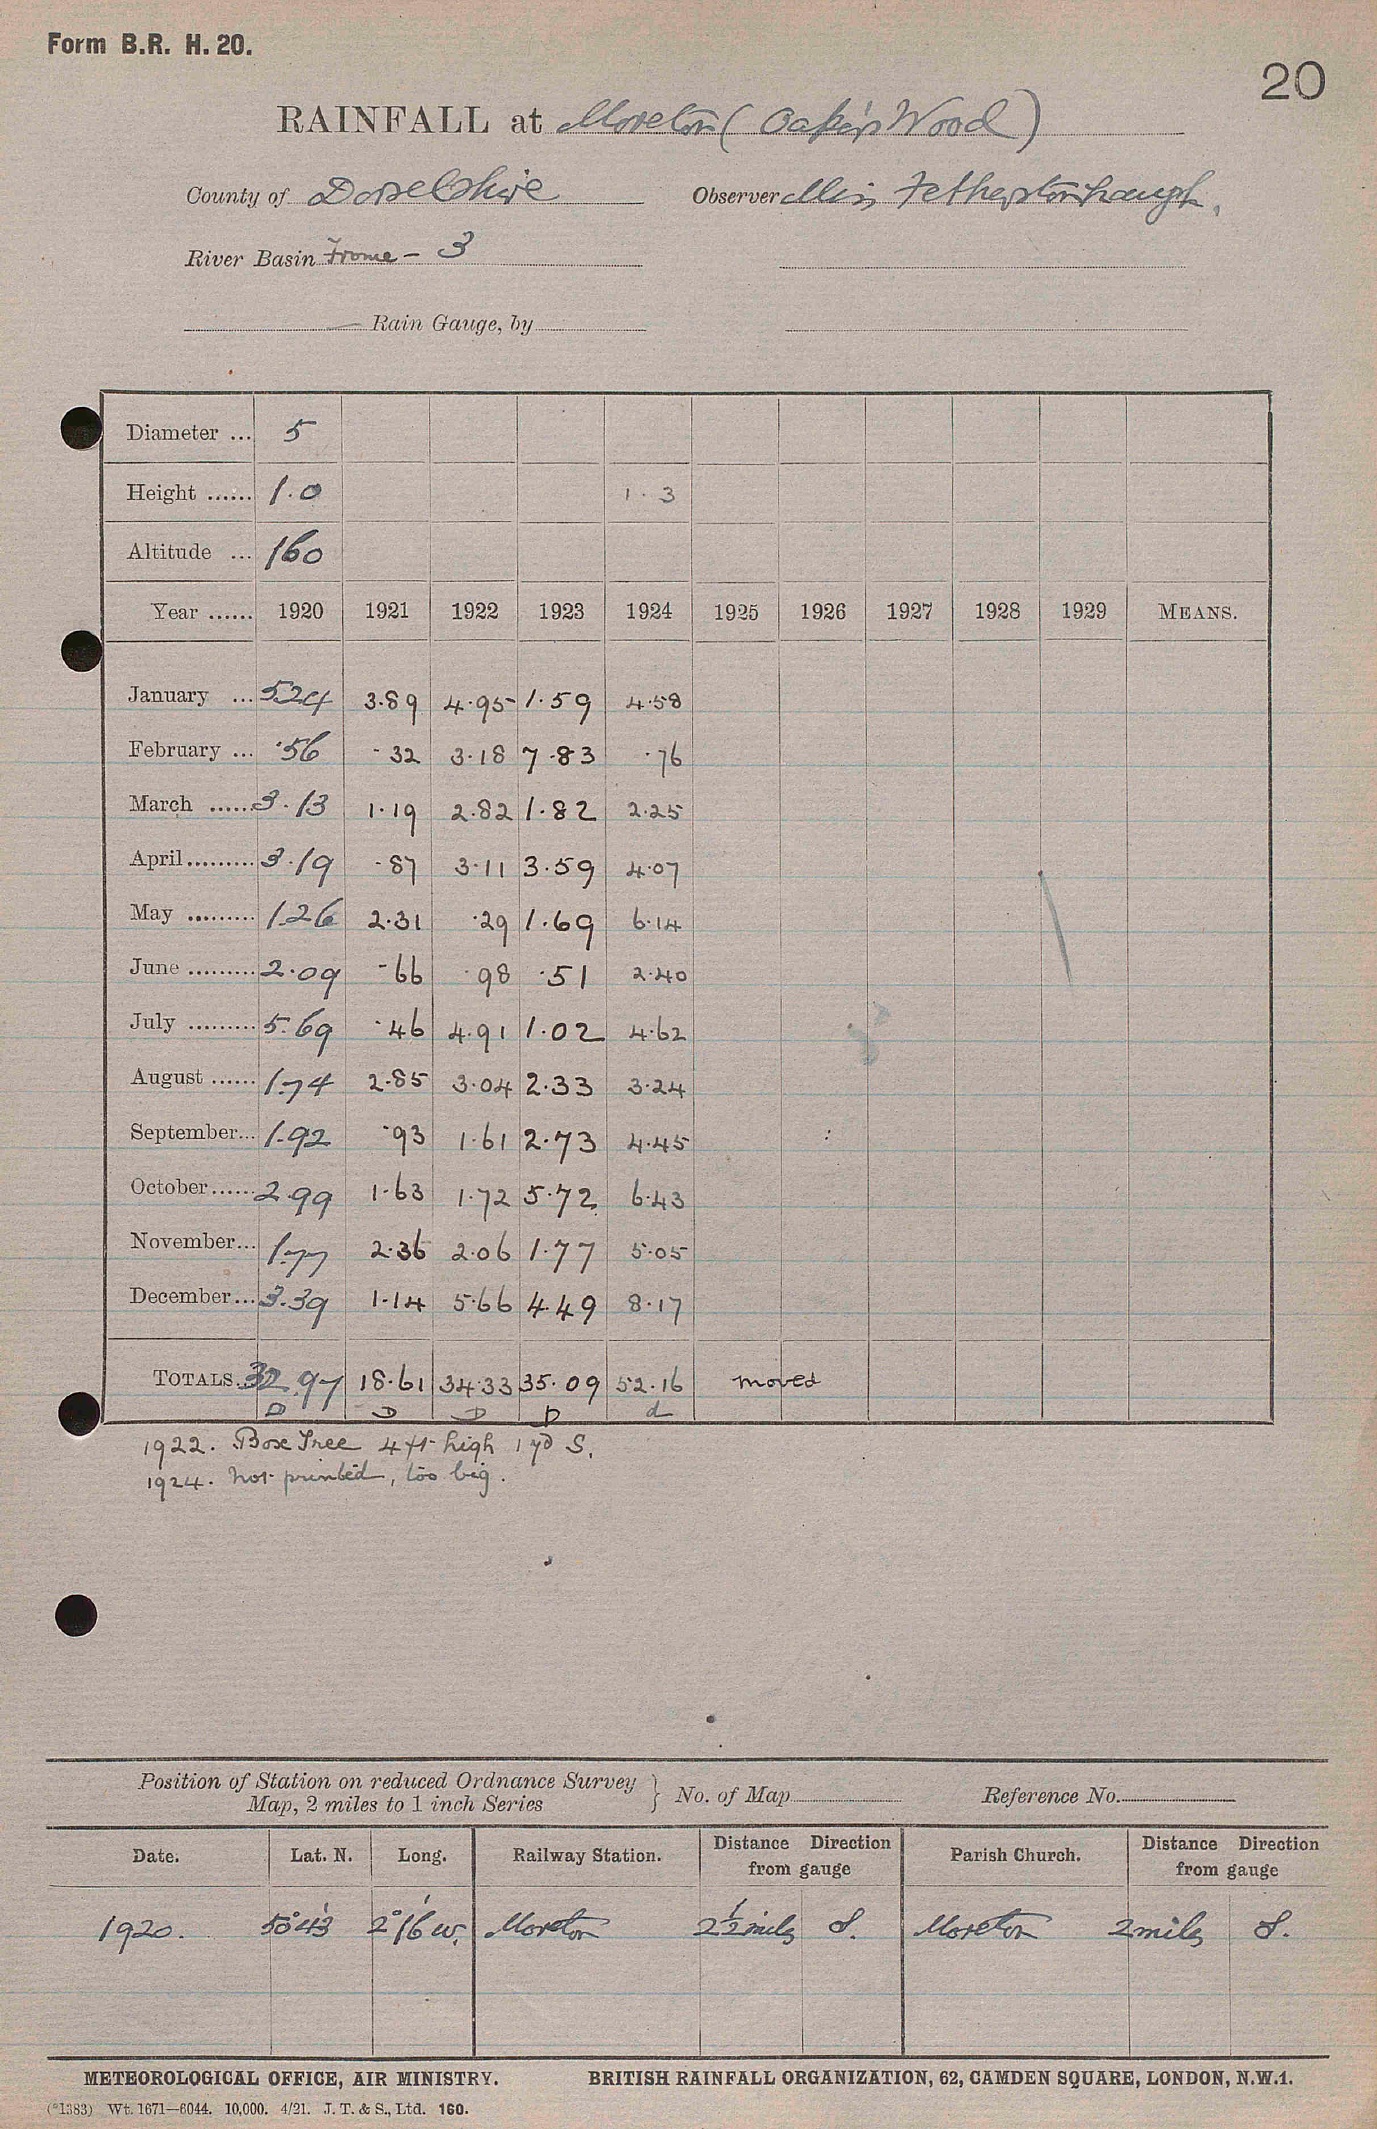 Form B.R. H. 20.
20
RAINFALL at Moreton (Oaker's Wood)
County of Dorsetshire Observer Miss Fetherstonhaugh.
River Basin Frome - 3
Rain Gauge, by
Diameter ... 5
Height ...... 1.0 1.3
Altitude ... 160
Year ...... 1920 1921 1922 1923 1924 1925 1926 1927 1928 1929 MEANS.
January ... 5.24 3.89 4.95 1.59 4.58
February ... .56 .32 3.18 7.83 .76
March ...... 3.13 1.19 2.82 1.82 2.25
April ......... 3.19 .87 3.11 3.59 4.07
May ......... 1.26 2.31 .29 1.69 6.14
June ......... 2.09 .66 .98 .51 2.40
July ......... 5.69 .46 4.91 1.02 4.62
August ...... 1.74 2.85 3.04 2.33 3.24
September... 1.92 .93 1.61 2.73 4.45
October...... 2.99 1.63 1.72 5.72 6.43
November... 1.77 2.36 2.06 1.77 5.05
December... 3.39 1.14 5.66 4.49 8.17
TOTALS. 32.97 18.61 34.33 35.09 52.16 moved
D D D D d
1922. Box Tree 4 ft high 1 yd S.
1924. not printed, too big.
Position of Station on reduced Ordnance Survey
Map, 2 miles to 1 inch Series } No. of Map Reference No.
Date. Lat. N. Long. Railway Station. Distance Direction from gauge Parish Church. Distance Direction from gauge
1920. 50°43' 2°16' W. Moreton 2½ miles S. Moreton 2 miles S.
METEOROLOGICAL OFFICE, AIR MINISTRY. BRITISH RAINFALL ORGANIZATION, 62, CAMDEN SQUARE, LONDON, N.W.1.
(*1383) Wt. 1671—6044. 10,000. 4/21. J. T. & S., Ltd. 160.